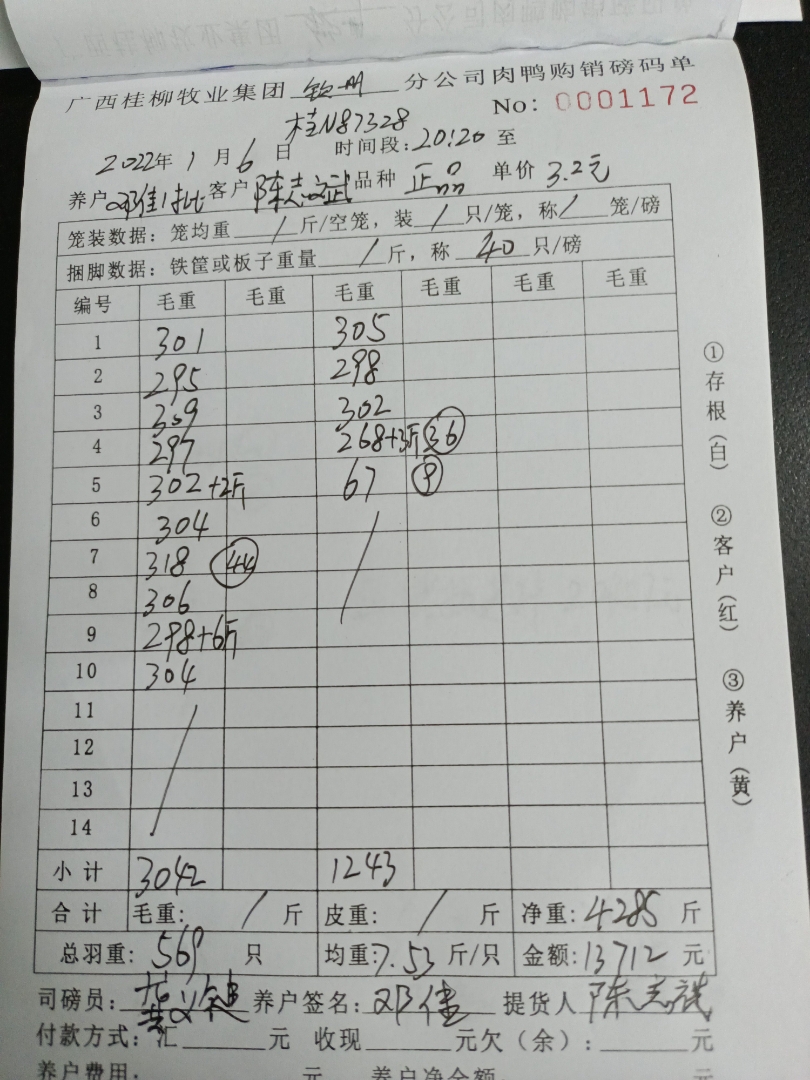 广西桂柳牧业集团 钦州 分公司肉鸭购销磅码单
桂N87328 No: 0001172
2022年 1 月 6 日 时间段: 20:20 至
养户 邓佳1批 客户 陈志斌 品种 正品 单价 3.2元
笼装数据: 笼均重 / 斤/空笼, 装 / 只/笼, 称 / 笼/磅
捆脚数据: 铁筐或板子重量 / 斤, 称 40 只/磅
编号 毛重 毛重 毛重 毛重 毛重 毛重
1 301 305
2 295 298
3 309 302
4 297 268+3斤 36
5 302+2斤 67 9
6 304
7 318 44
8 306
9 298+6斤
10 304
11
12
13
14
小计 3042 1243
合计 毛重: / 斤 皮重: / 斤 净重: 4285 斤
总羽重: 569 只 均重: 7.53 斤/只 金额: 13712 元
司磅员: 养户签名: 邓佳 提货人 陈志斌
付款方式: 汇 元 收现 元欠(余): 元
养户费用: 元 养户净金额 元
①存根(白) ②客户(红) ③养户(黄)